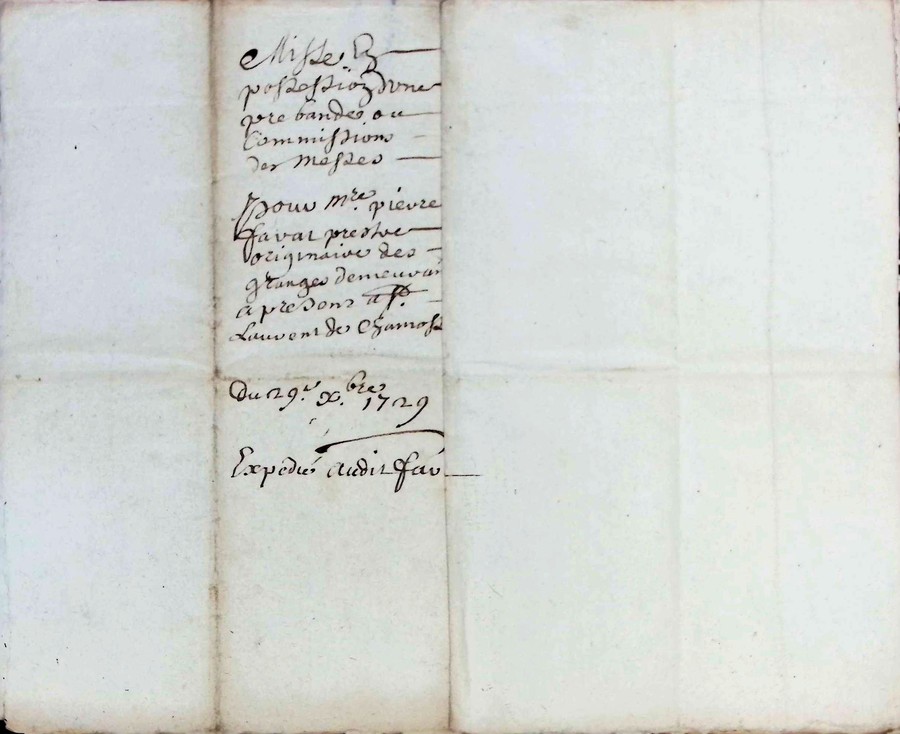 Misse En
possession d'une
pre bande ou
Commissions
des Messes
Pour Mre. pierre
favat prestre
originaire des
granges demeurant
a presens a St.
Laurent de Chamoss
du 29e. xbre. 1729
Expediés audit fav